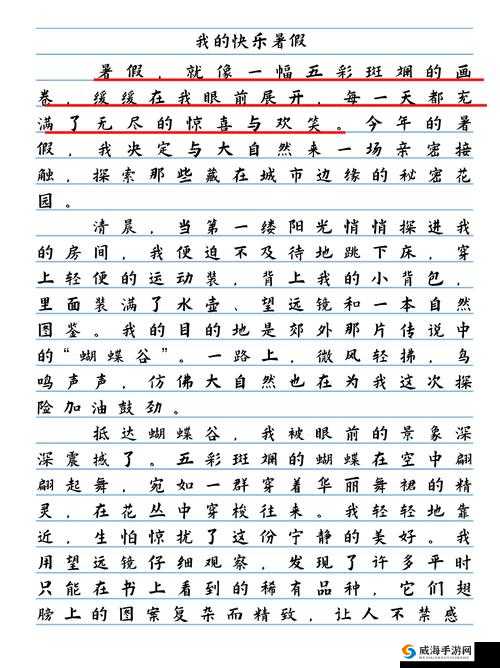 我的快乐暑假
暑假，就像一幅五彩斑斓的画
卷，缓缓在我眼前展开，每一天都充
满了无尽的惊喜与欢笑。今年的暑
假，我决定与大自然来一场亲密接
触，探索那些藏在城市边缘的秘密花
园。
清晨，当第一缕阳光悄悄探进我
的房间，我便迫不及待地跳下床，穿
上轻便的运动装，背上我的小背包，
里面装满了水壶、望远镜和一本自然
图鉴。我的目的地是郊外那片传说中
的“蝴蝶谷”。一路上，微风轻拂，鸟
鸣声声，仿佛大自然也在为我这次探
险加油鼓劲。
抵达蝴蝶谷，我被眼前的景象深
深震撼了。五彩斑斓的蝴蝶在空中翩
翩起舞，宛如一群穿着华丽舞裙的精
灵，在花丛中穿梭往来。我轻轻地靠
近，生怕惊扰了这份宁静的美好。我
用望远镜仔细观察，发现了许多平时
只能在书上看到的稀有品种，它们翅
膀上的图案复杂而精致，让人不禁感
威海手游网